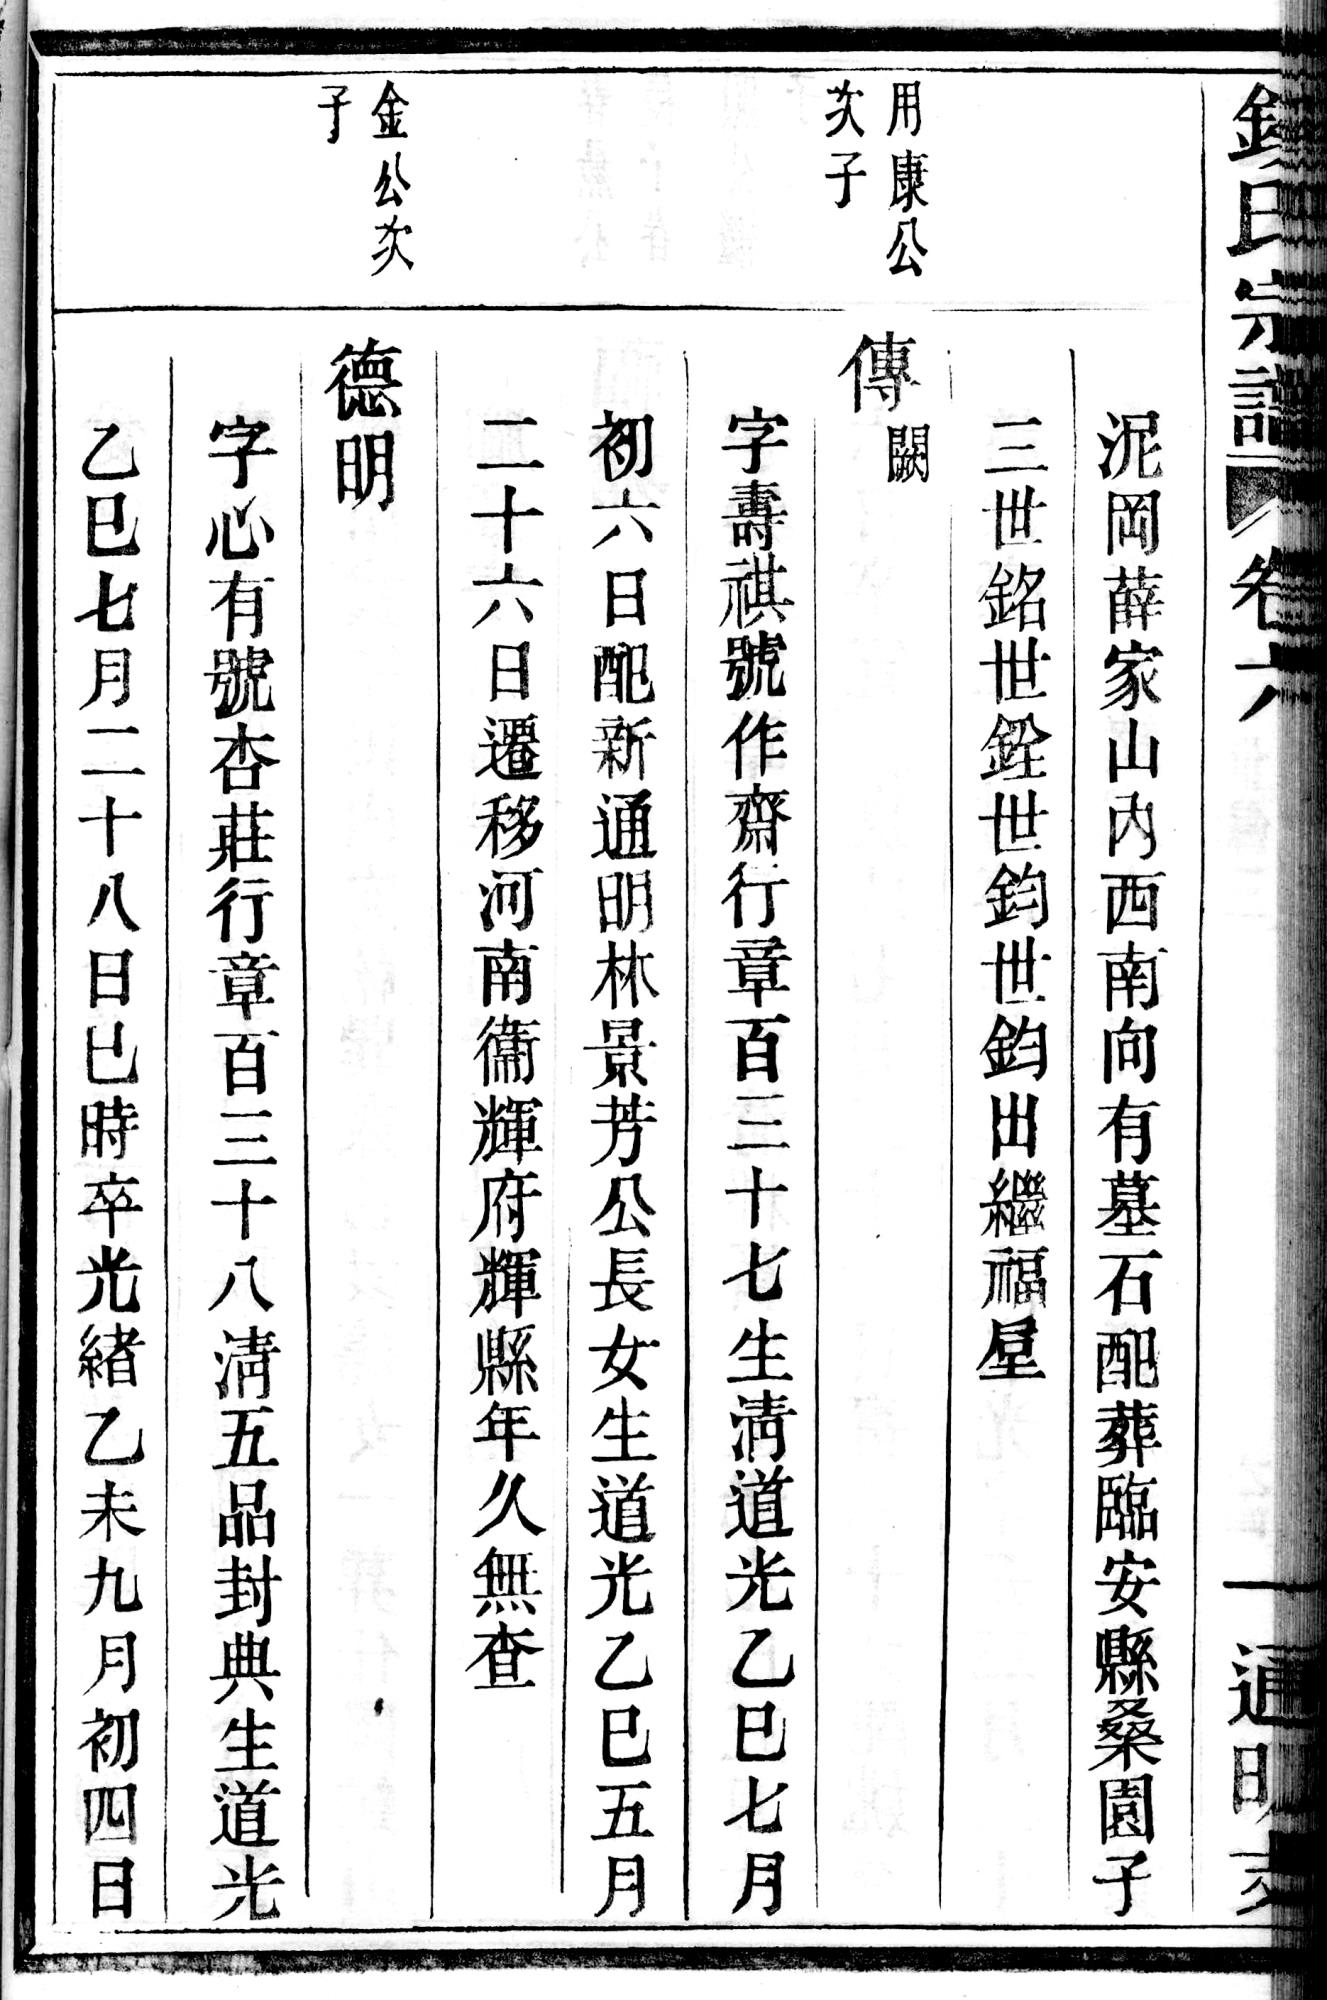 錢氏宗譜 卷六 一 通明支
泥岡薛家山內西南向有墓石配葬臨安縣桑園子
三世銘世銓世鈞世鈞出繼福垕
用康公
次子
傳闕
字壽祺號作齋行章百三十七生淸道光乙巳七月
初六日配新通明林景芳公長女生道光乙巳五月
二十六日遷移河南衞輝府輝縣年久無查
金公次
子
德明
字心有號杏莊行章百三十八淸五品封典生道光
乙巳七月二十八日巳時卒光緒乙未九月初四日